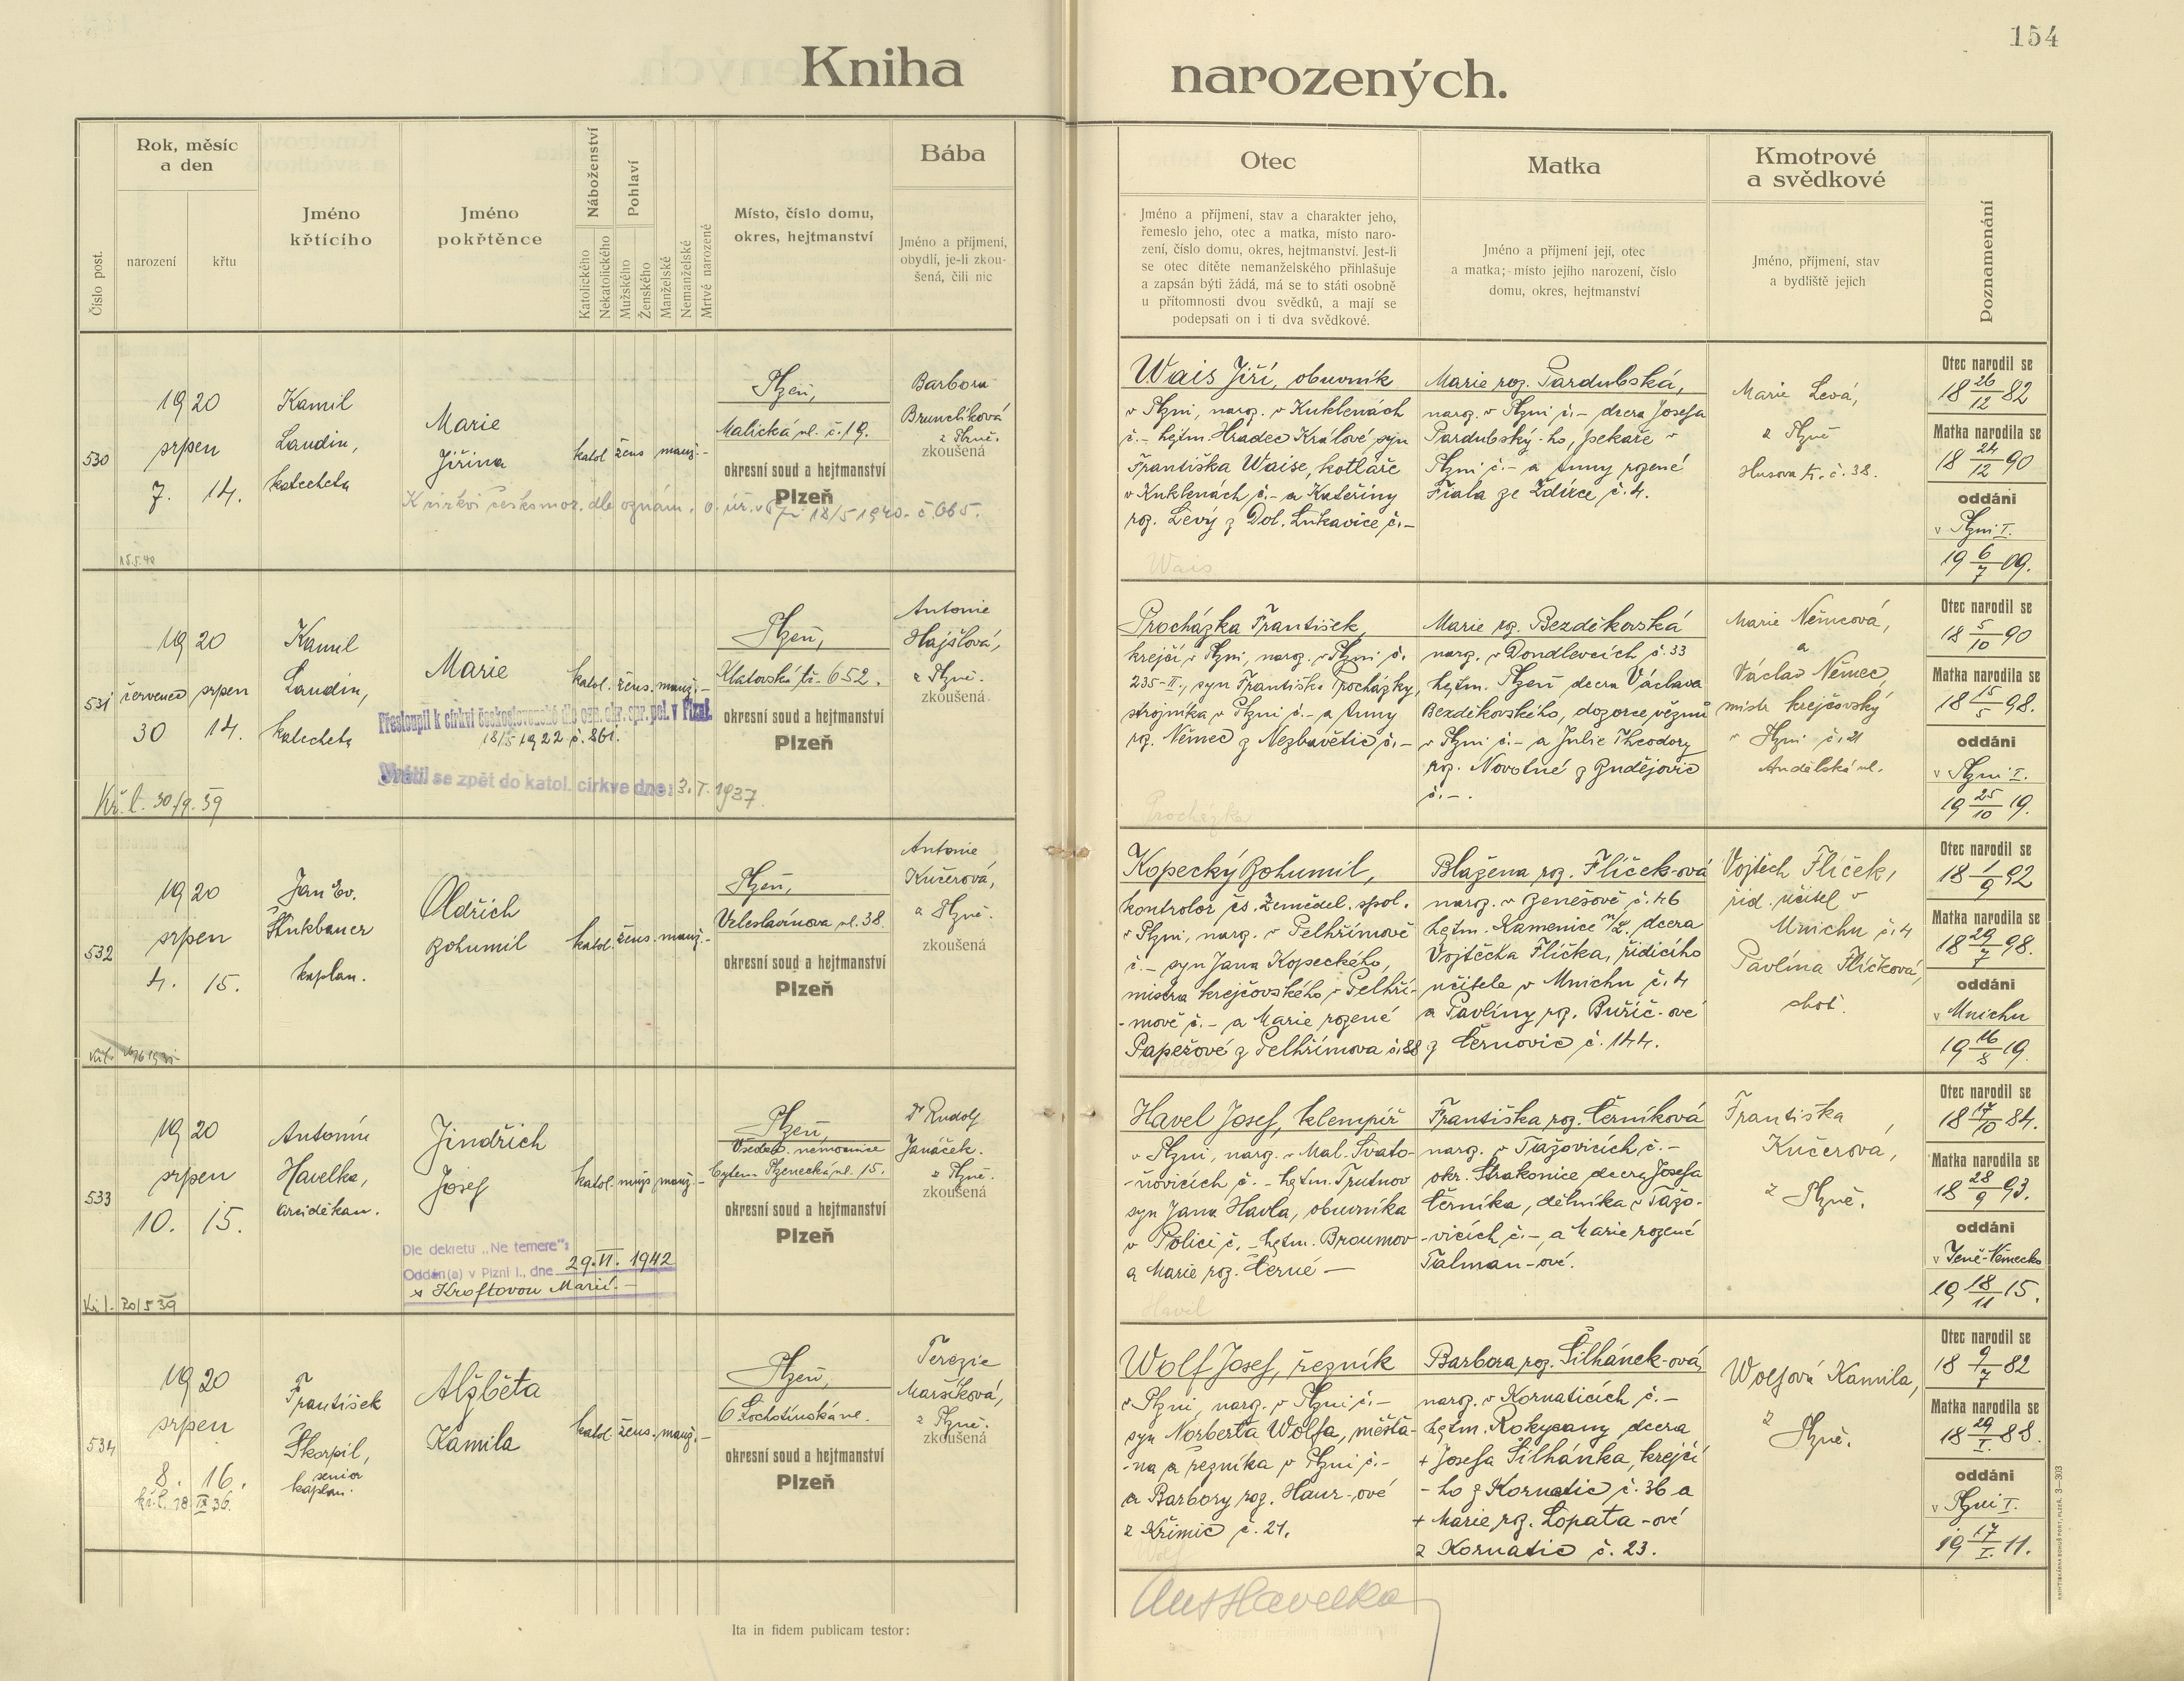 154
Kniha narozených.
Číslo post.
Rok, měsíc
a den
narození
křtu
Jméno
křtícího
Jméno
pokřtěnce
Náboženství
Katolického
Nekatolického
Pohlaví
Mužského
Ženského
Manželské
Nemanželské
Mrtvě narozené
Místo, číslo domu,
okres, hejtmanství
Bába
Jméno a příjmení,
obydlí, je-li zkou-
šená, čili nic
Otec
Jméno a příjmení, stav a charakter jeho,
řemeslo jeho, otec a matka, místo naro-
zení, číslo domu, okres, hejtmanství. Jest-li
se otec dítěte nemanželského přihlašuje
a zapsán býti žádá, má se to státi osobně
u přítomnosti dvou svědků, a mají se
podepsati on i ti dva svědkové.
Matka
Jméno a příjmení její, otec
a matka; místo jejího narození, číslo
domu, okres, hejtmanství
Kmotrové
a svědkové
Jméno, příjmení, stav
a bydliště jejich
Poznamenání
530
1920
srpen
7. 14.
15.5.40
Kamil
Laudin,
katecheta
Marie
Jiřina
katol žens manž.-
K církvi českomor. dle oznám. o. úř. v Plzni 18/5 1940. č. 665.
Plzeň,
Malická ul. č. 19.
okresní soud a hejtmanství
Plzeň
Barbora
Brunclíková
z Plzně.
zkoušená
Wais Jiří, obuvník
v Plzni, naroz. v Kuklenách
č.- hejtm. Hradec Králové syn
Františka Waise, kotláře
v Kuklenách č.- a Kateřiny
roz. Levý z Dol. Lukavice č.-
Wais
Marie roz. Pardubská,
naroz. v Plzni č.- dcera Josefa
Pardubský-ho, pekaře v
Plzni č.- a Anny rozené
Fiala ze Ždírce č. 4.
Marie Levá,
z Plzně
Husova tř. č. 38.
Otec narodil se
18 26/12 82
Matka narodila se
18 24/12 90
oddáni
v Plzni I.
19 6/7 09.
531
1920
červenec srpen
30 14.
Kř. l. 30/9. 39
Kamil
Laudin,
katecheta
Marie
katol. žens. manž.-
Přestoupil k církvi československé dle ozn. okr. spr. pol. v Plzni.
18/5 1922 č. 861.
Vrátil se zpět do katol. církve dne: 3. I. 1937.
Plzeň,
Klatovská tř. 652.
okresní soud a hejtmanství
Plzeň
Antonie
Hajšlová,
z Plzně.
zkoušená
Procházka František,
krejčí v Plzni, naroz. v Plzni č.
235-II., syn Františka Procházky,
strojníka v Plzni č.- a Anny
roz. Němec z Nezbavětic č.-
Procházka
Marie roz. Bezděkovská
naroz. v Dondlevcích č. 33
hejtm. Plzeň dcera Václava
Bezděkovského, dozorce vězňů
v Plzni č.- a Julie Theodory
roz. Novotné z Hudějovic
č.-.
Marie Němcová,
a
Václav Němec,
mistr krejčovský
v Plzni č. 21
Andělská ul.
Otec narodil se
18 5/10 90
Matka narodila se
18 15/5 98.
oddáni
v Plzni I.
19 25/10 19.
532
1920
srpen
4. 15.
Jan Ev.
Štukbauer
kaplan.
Oldřich
Bohumil
katol. žens. manž.-
Plzeň,
Veleslavínova ul. 38.
okresní soud a hejtmanství
Plzeň
Antonie
Kučerová,
z Plzně.
zkoušená
Kopecký Bohumil,
kontrolor čs. Zemědel. spol.
v Plzni, naroz. v Pelhřimově
č.- syn Jana Kopeckého,
mistra krejčovského v Pelhři-
-mově č.- a Marie rozené
Papežové z Pelhřimova č. 88
Blažena roz. Flíček-ová
naroz. v Benešově č. 46
hejtm. Kamenice n/L. dcera
Vojtěcha Flíčka, řídicího
učitele v Mnichu č. 4
a Pavlíny roz. Buřič-ové
z Černovic č. 144.
Vojtěch Flíček,
říd. učitel v
Mnichu č. 4
Pavlína Flíčková,
choť.
Otec narodil se
18 1/9 92
Matka narodila se
18 29/7 98.
oddáni
v Mnichu
19 16/8 19.
533
1920
srpen
10. 15.
Kř. l. 20/5 39
Antonín
Havelka,
arciděkan.
Jindřich
Josef
katol. mužs manž.-
Dle dekretu „Ne temere":
Oddán(a) v Plzni I., dne 29. VI. 1942
s Kroftovou Marií.-
Plzeň,
Všeob. nemocnice
bytem Plzenecká ul. 15.
okresní soud a hejtmanství
Plzeň
Dr Rudolf
Janáček.
z Plzně.
zkoušená
Havel Josef, klempíř
v Plzni, naroz. v Mal. Svato-
-ňovicích č. - hejtm. Trutnov
syn Jana Havla, obuvníka
v Polici č.- hejtm. Broumov
a Marie roz. Černé —
Havel
Františka roz. Černíková
naroz. v Tažovicích č.-
okr. Strakonice dcera Josefa
Černíka, dělníka v Tažo-
-vicích č.-, a Marie rozené
Talman-ové.
Františka
Kučerová,
z Plzně.
Otec narodil se
18 17/10 84.
Matka narodila se
18 28/9 93.
oddáni
v Jeně-Německo
19 18/11 15.
534
1920
srpen
8. 16.
kř. l. 18 IX 36.
František
Škorpil,
senior
kaplan.
Alžběta
Kamila
katol. žens. manž.-
Plzeň,
6 Lochotínská ul.
okresní soud a hejtmanství
Plzeň
Terezie
Maršíková,
z Plzně.
zkoušená
Wolf Josef, řezník
v Plzni, naroz. v Plzni č.-
syn Norberta Wolfa, měšťa-
-na a řezníka v Plzni č.-
a Barbory roz. Haur-ové
z Křimic č. 21.
Wolf
Barbora roz. Šilhánek-ová,
naroz. v Kornaticích č.-
hejtm. Rokycany dcera
+ Josefa Šilhánka, krejčí
-ho z Kornatic č. 36 a
+ Marie roz. Lopata-ové
z Kornatic č. 23.
Wolfová Kamila,
z
Plzně.
Otec narodil se
18 9/7 82
Matka narodila se
18 29/I. 88.
oddáni
v Plzni I.
19 17/I. 11.
Ant Havelka
Ita in fidem publicam testor: